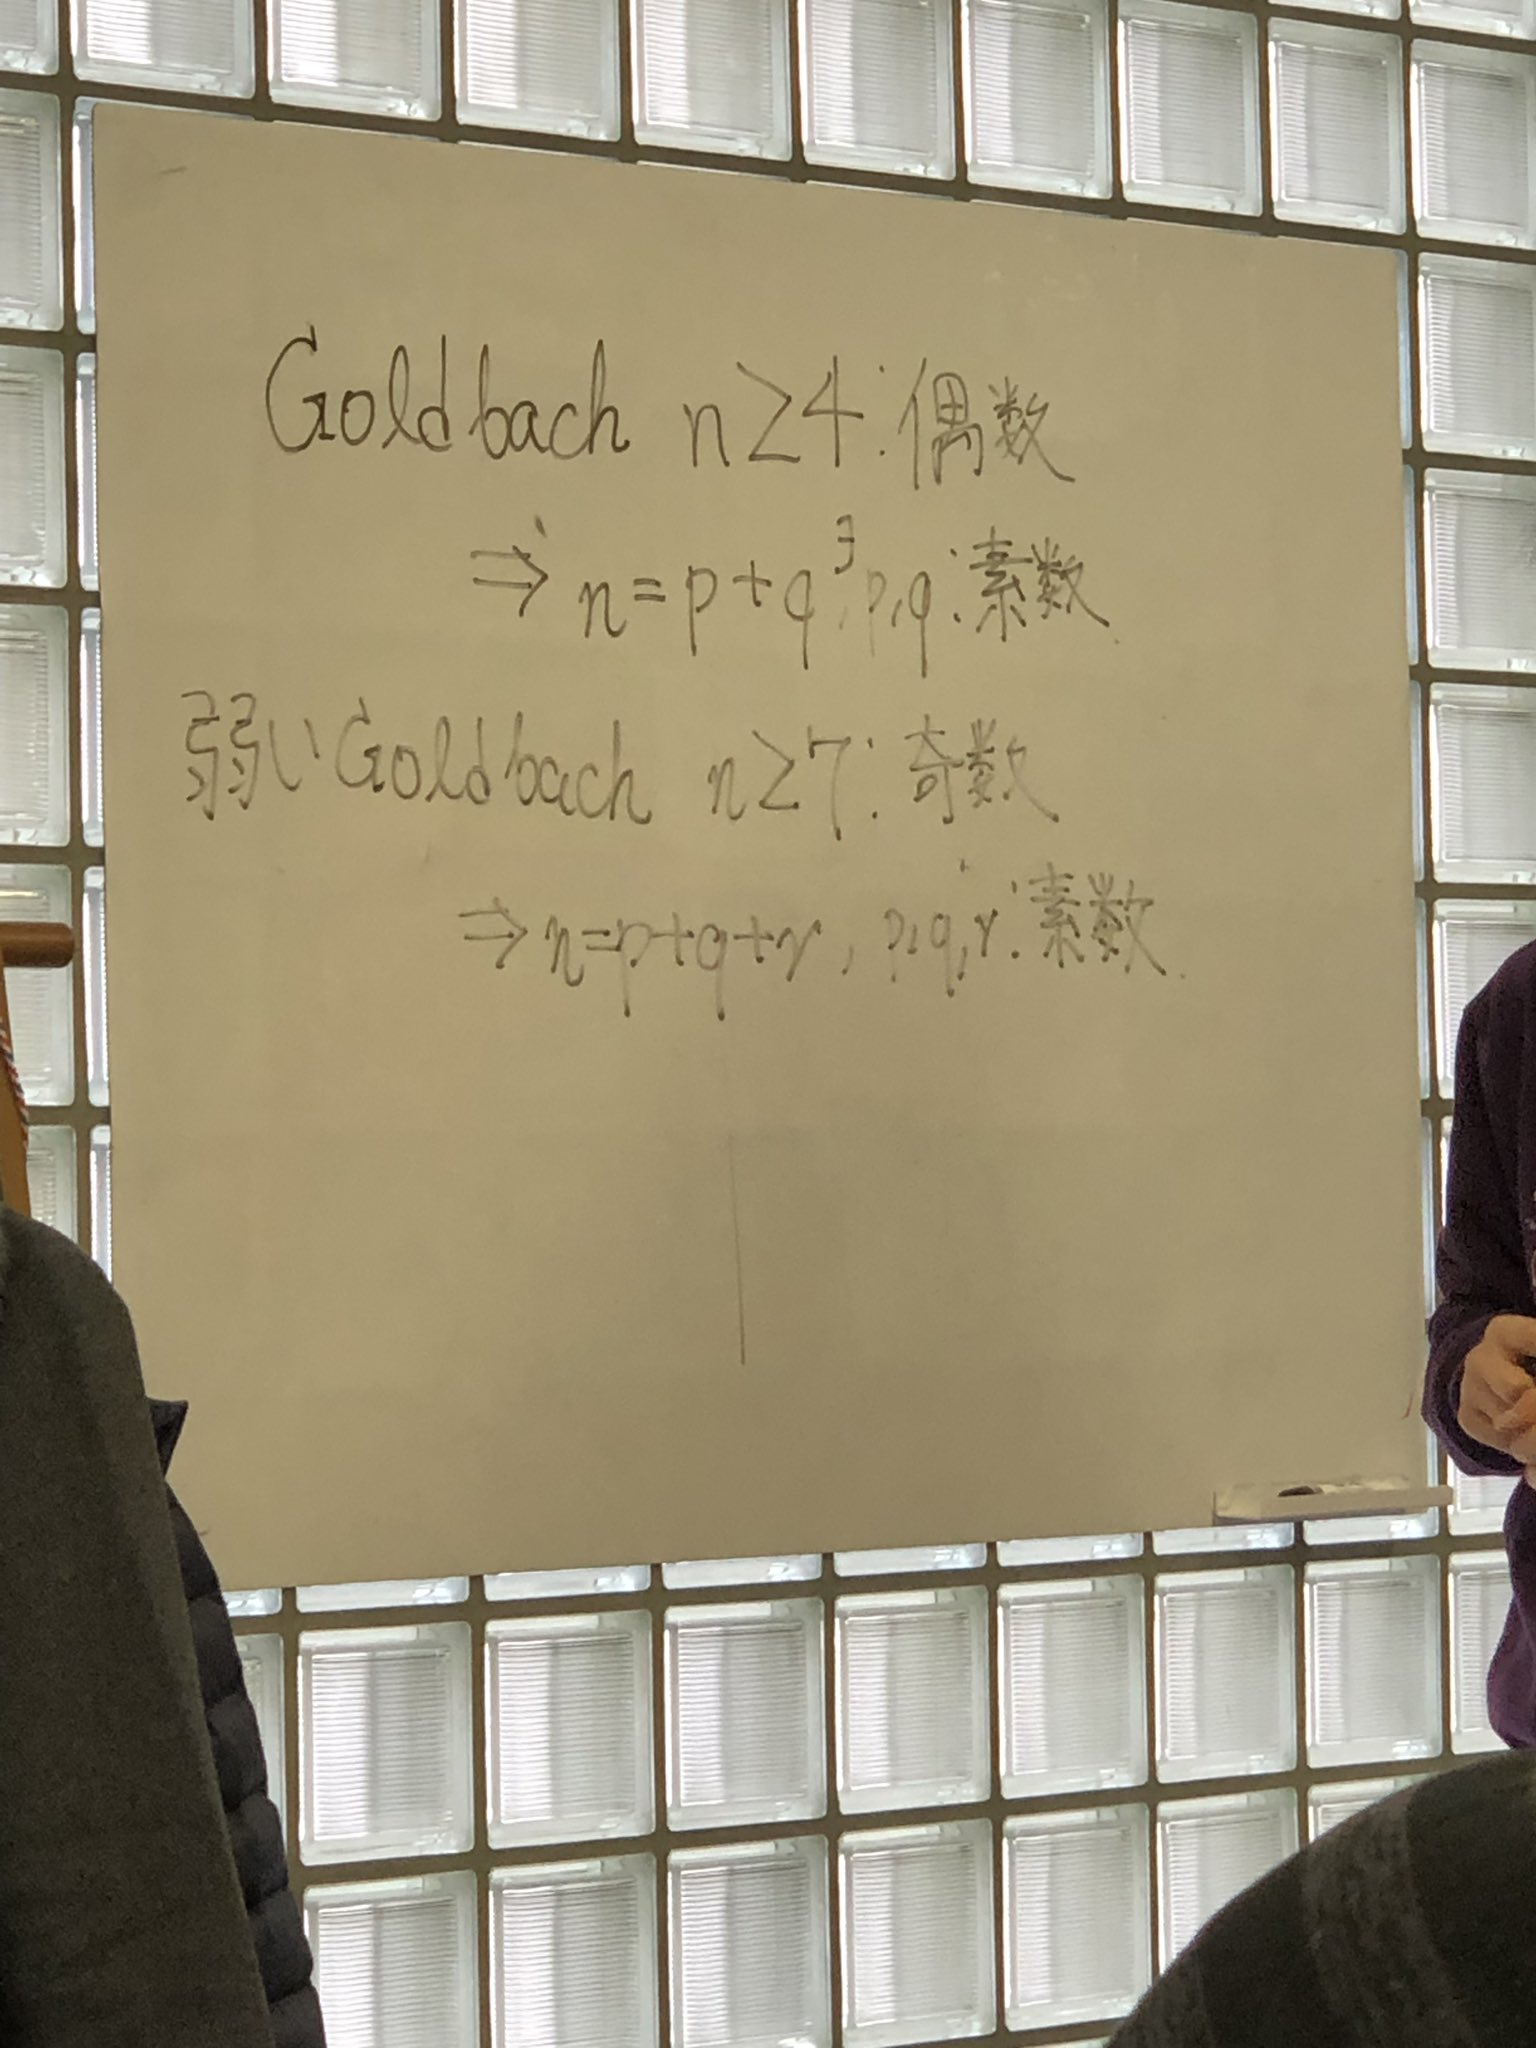 Goldbach n≥4:偶数
⇒ n=p+q, ∃p,q:素数
弱い Goldbach n≥7:奇数
⇒ n=p+q+r, p,q,r:素数.